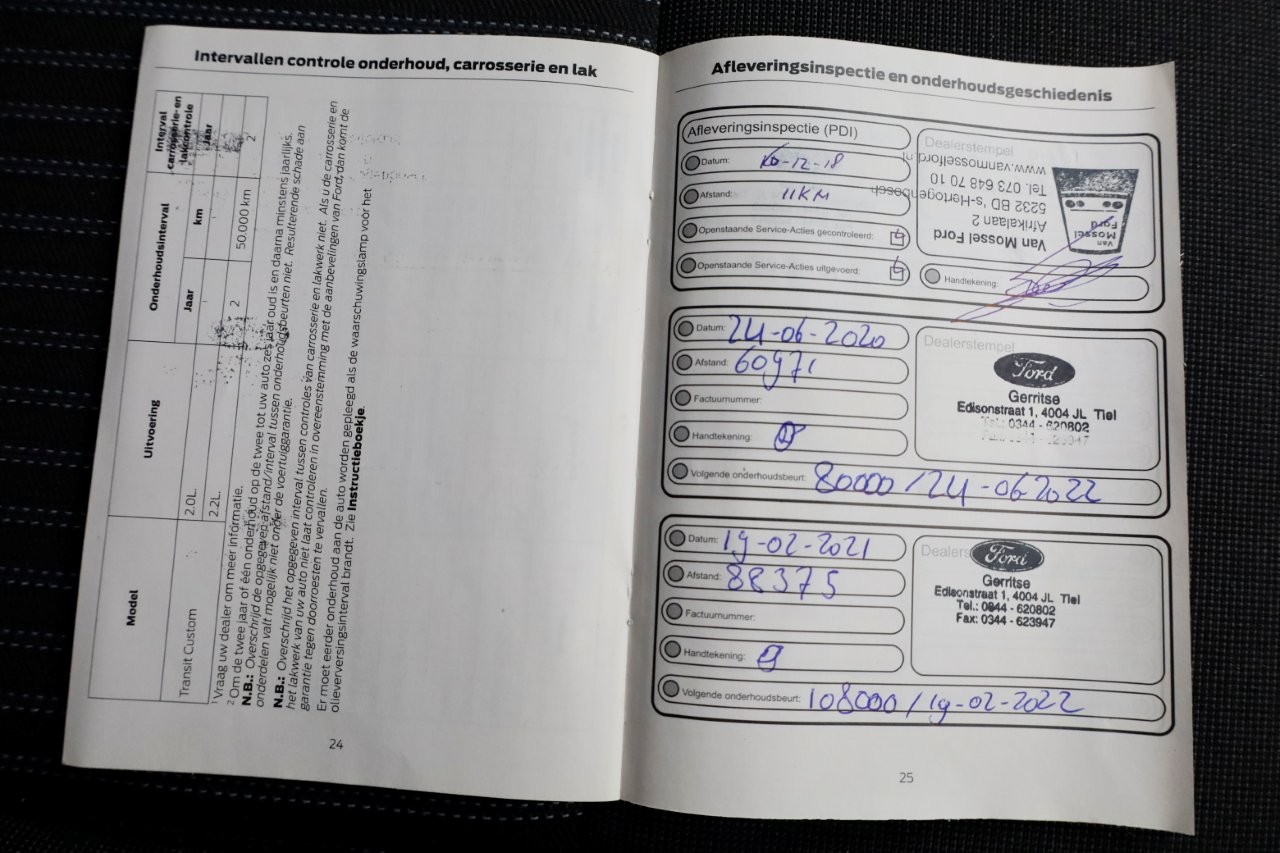 Intervallen controle onderhoud, carrosserie en lak
Model
Uitvoering
Onderhoudsinterval
Interval carrosserie- en lakcontrole
Jaar
km
Jaar
Transit Custom
2.0L
2.2L
2
50.000 km
2
1 Vraag uw dealer om meer informatie.
2 Om de twee jaar of één onderhoud op de twee tot uw auto zes jaar oud is en daarna minstens jaarlijks.
N.B.: Overschrijd de opgegeven afstand/interval tussen onderhoudsbeurten niet. Resulterende schade aan
onderdelen valt mogelijk niet onder de voertuiggarantie.
N.B.: Overschrijd het opgegeven interval tussen controles van carrosserie en lakwerk niet. Als u de carrosserie en
het lakwerk van uw auto niet laat controleren in overeenstemming met de aanbevelingen van Ford, dan komt de
garantie tegen doorroesten te vervallen.
Er moet eerder onderhoud aan de auto worden gepleegd als de waarschuwingslamp voor het
olieverversingsinterval brandt. Zie Instructieboekje.
24
Afleveringsinspectie en onderhoudsgeschiedenis
Afleveringsinspectie (PDI)
Datum: -12-18
Afstand: 11KM
Openstaande Service-Acties gecontroleerd:
Openstaande Service-Acties uitgevoerd:
Dealerstempel
Van Mossel Ford
Afrikalaan 2
5232 BD 's-Hertogenbosch
Tel. 073 648 70 10
www.vanmosselford.nl
Van
Mossel
Ford
Handtekening:
Datum: 24-06-2020
Afstand: 60971
Factuurnummer:
Handtekening:
Volgende onderhoudsbeurt: 80000 / 24-06 2022
Dealerstempel
Ford
Gerritse
Edisonstraat 1, 4004 JL Tiel
Tel.: 0344 - 620802
Datum: 19-02-2021
Afstand: 88375
Factuurnummer:
Handtekening:
Volgende onderhoudsbeurt: 108000 / 19-02-2022
Dealers
Ford
Gerritse
Edisonstraat 1, 4004 JL Tiel
Tel.: 0344 - 620802
Fax: 0344 - 623947
25